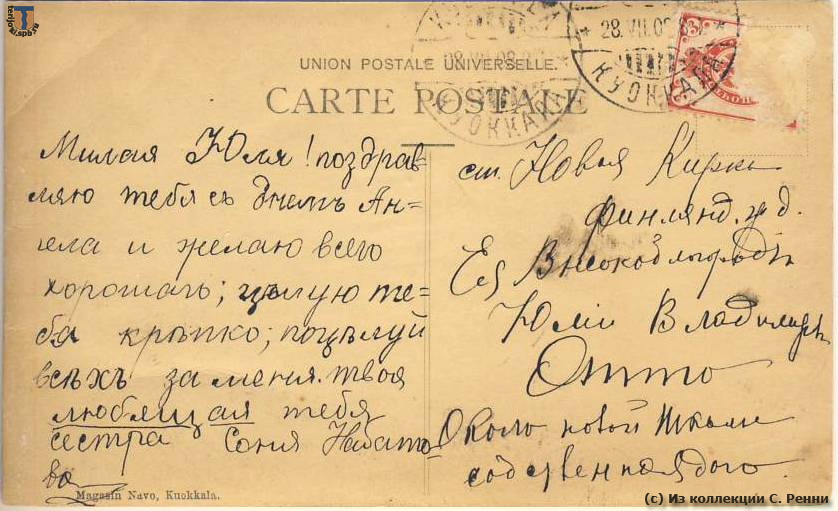 UNION POSTALE UNIVERSELLE.
CARTE POSTALE
28.VII.08
КУОККАЛА
28.VII.08
КУОККАЛА
Милая Юля! поздрав=
ляю тебя съ днемъ Ан=
гела и желаю всего
хорошаго; цѣлую те=
бя крѣпко; поцѣлуй
всѣхъ за меня. твоя
любящая тебя
сестра Соня Набато=
ва
ст. Новая Кирка
Финлянд. ж. д.
Ея Высокоблагородію
Юліи Владиміровнѣ
Отто
Около новой школы
собственная дача.
Magasin Navo, Kuokkala.
(c) Из коллекции С. Ренни